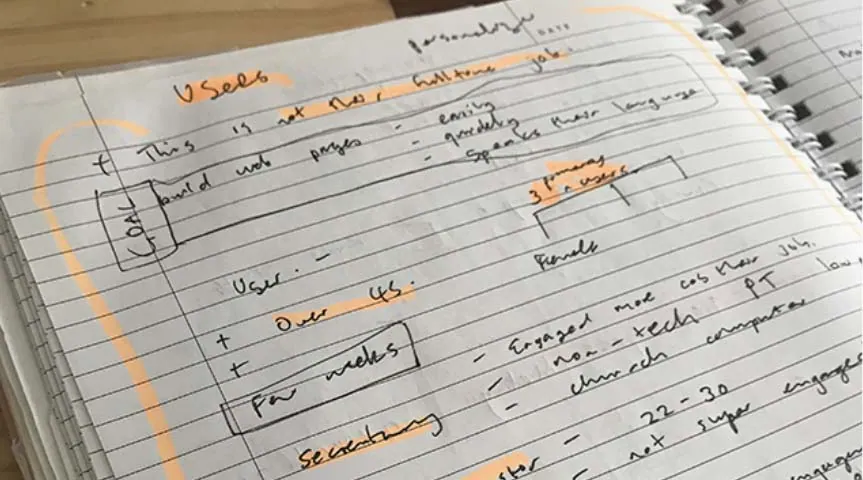 DATE
Users
+ This is not their fulltime job.
GOAL
build web pages - easily
- quickly
- speaks their language
3 primary users
Female
User. -
+ Over 45.
+
Few weeks
- Engaged more cos their job.
- non-tech PT
- church computer
Secretary
- 22-30
- not super engaged